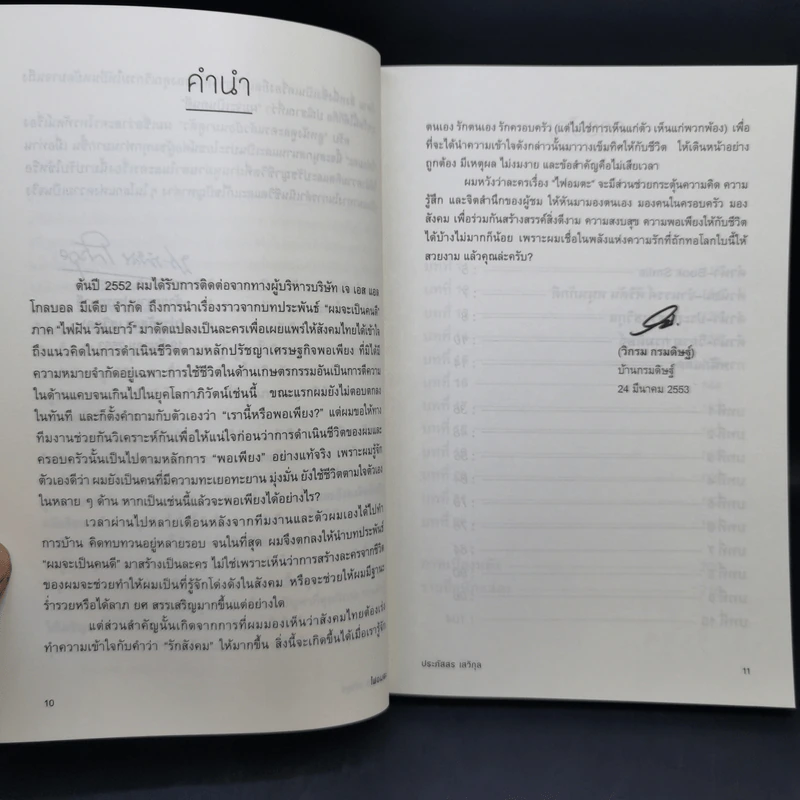 คำนำ
ต้นปี 2552 ผมได้รับการติดต่อจากทางผู้บริหารบริษัท เจ เอส แอล
โกลบอล มีเดีย จำกัด ถึงการนำเรื่องราวจากบทประพันธ์ “ผมจะเป็นคนดี”
ภาค “ไฟฝัน วันเยาว์” มาดัดแปลงเป็นละครเพื่อเผยแพร่ให้สังคมไทยได้เข้าใจ
ถึงแนวคิดในการดำเนินชีวิตตามหลักปรัชญาเศรษฐกิจพอเพียง ที่มิได้มี
ความหมายจำกัดอยู่เฉพาะการใช้ชีวิตในด้านเกษตรกรรมอันเป็นการตีความ
ในด้านแคบจนเกินไปในยุคโลกาภิวัตน์เช่นนี้ ขณะแรกผมยังไม่ตอบตกลง
ในทันที และก็ตั้งคำถามกับตัวเองว่า “เรานี้หรือพอเพียง?” แต่ผมขอให้ทาง
ทีมงานช่วยกันวิเคราะห์กันเพื่อให้แน่ใจก่อนว่าการดำเนินชีวิตของผมและ
ครอบครัวนั้นเป็นไปตามหลักการ “พอเพียง” อย่างแท้จริง เพราะผมรู้จัก
ตัวเองดีว่า ผมยังเป็นคนที่มีความทะเยอทะยาน มุ่งมั่น ยังใช้ชีวิตตามใจตัวเอง
ในหลาย ๆ ด้าน หากเป็นเช่นนี้แล้วจะพอเพียงได้อย่างไร?
เวลาผ่านไปหลายเดือนหลังจากทีมงานและตัวผมเองได้ไปทำ
การบ้าน คิดทบทวนอยู่หลายรอบ จนในที่สุด ผมจึงตกลงให้นำบทประพันธ์
“ผมจะเป็นคนดี” มาสร้างเป็นละคร ไม่ใช่เพราะเห็นว่าการสร้างละครจากชีวิต
ของผมจะช่วยทำให้ผมเป็นที่รู้จักโด่งดังในสังคม หรือจะช่วยให้ผมมีฐานะ
ร่ำรวยหรือได้ลาภ ยศ สรรเสริญมากขึ้นแต่อย่างใด
แต่ส่วนสำคัญนั้นเกิดจากการที่ผมมองเห็นว่าสังคมไทยต้องเร่ง
ทำความเข้าใจกับคำว่า “รักสังคม” ให้มากขึ้น สิ่งนี้จะเกิดขึ้นได้เมื่อเรารู้จัก
10
ตนเอง รักตนเอง รักครอบครัว (แต่ไม่ใช่การเห็นแก่ตัว เห็นแก่พวกพ้อง) เพื่อ
ที่จะได้นำความเข้าใจดังกล่าวนั้นมาวางเข็มทิศให้กับชีวิต ให้เดินหน้าอย่าง
ถูกต้อง มีเหตุผล ไม่งมงาย และข้อสำคัญคือไม่เสียเวลา
ผมหวังว่าละครเรื่อง “ไฟอมตะ” จะมีส่วนช่วยกระตุ้นความคิด ความ
รู้สึก และจิตสำนึกของผู้ชม ให้หันมามองตนเอง มองคนในครอบครัว มอง
สังคม เพื่อร่วมกันสร้างสรรค์สิ่งดีงาม ความสงบสุข ความพอเพียงให้กับชีวิต
ได้บ้างไม่มากก็น้อย เพราะผมเชื่อในพลังแห่งความรักที่ถักทอโลกใบนี้ให้
สวยงาม แล้วคุณล่ะครับ?
(วิกรม กรมดิษฐ์)
บ้านกรมดิษฐ์
24 มีนาคม 2553
ประภัสสร เสวิกุล
11